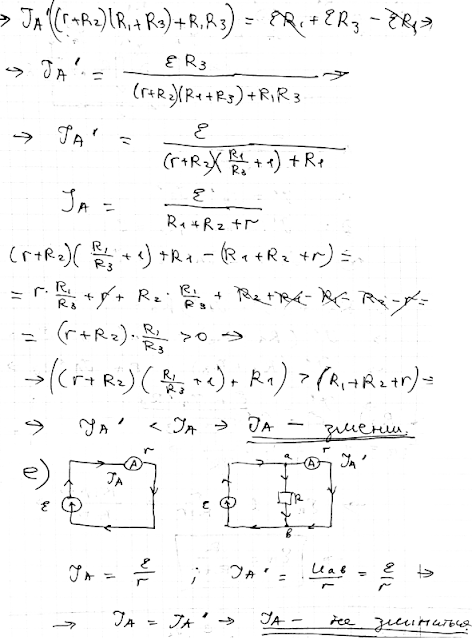 → J_A'((r+R₂)(R₁+R₃)+R₁R₃) = ℰR₁ + ℰR₃ − ℰR₁ →
→ J_A' = ℰR₃ / ((r+R₂)(R₁+R₃)+R₁R₃) →
→ J_A' = ℰ / ((r+R₂)(R₁/R₃ + 1) + R₁)
J_A = ℰ / (R₁+R₂+r)
(r+R₂)(R₁/R₃ + 1) + R₁ − (R₁+R₂+r) =
= r·R₁/R₃ + r + R₂·R₁/R₃ + R₂+R₁ − R₁ − R₂ − r =
= (r+R₂)·R₁/R₃ > 0 →
→ ((r+R₂)(R₁/R₃ + 1) + R₁) > (R₁+R₂+r) =
→ J_A' < J_A → J_A – зменш.
е) ℰ J_A A r ℰ a R b A r J_A'
J_A = ℰ/r ; J_A' = Uав/r = ℰ/r →
→ J_A = J_A' → J_A – не зміниться